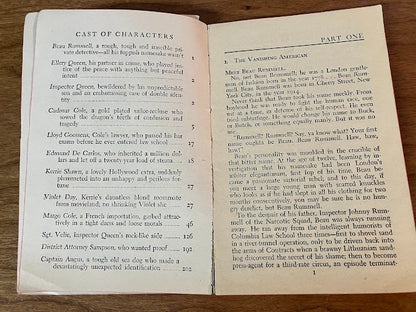 CAST OF CHARACTERS
Beau Rummell, a tough, tough and incisible pri-
vate detective—all his foppish namesake wasn't 1
Ellery Queen, his partner in cause, who played jus-
tice of the peace with anything but peaceful
intent 1
Inspector Queen, bewildered by his unpredictable
son and an embarrassing case of double
identity 2
Cadmus Cole, a gold plated valise-recluse who
vowed the strangest death of the century 5
Lloyd Goossens, Cole's lawyer, who passed his bar
exams before he ever entered law school 17
Edmund De Carlos, who inherited a million dollars
and let off a twenty year load of steam 18
Kerrie Shawn, a lovely Hollywood extra, suddenly
plummeted into an unhappy and perilous
fame 27
Violet Day, Kerrie's dauntless blond roommate
from moreland, no shrinking Violet she 27
Margo Cole, a French importation, garbed attrac-
tively in a tight dress and loose morals 46
Sgt. Velie, Inspector Queen's rock-like side 126
District Attorney Sampson, who wanted proof 192
Captain Angus, a tough old sea dog who made a
devastatingly unexpected identification 202
PART ONE
I. The Vanishing American
Meet Beau Rummell.
No, not Beau Brummell; he was a London gentle-
man of fashion born in the year 1778 Beau Rum-
mell. Beau Rummell was born in Cherry Street, New
York City, in the year 1914.
Never think that Beau took his name meekly. From
boyhood he was ready to fight the human race, one
at a time, as defense of his self-respect. He even
tried subterfuge. He would change his name to Buck,
or Butch, or something equally manly. But it was
no use.
"Rummell? Rummell? Say, I know what! Your first
name oughta be Beau. Beau Rummell. Haw, haw,
haw."
Beau's personality was moulded in the crucible of
that bitter name. At the age of twelve, learning by in-
vestigation that his namesake had been London's
wittiest elegantarian, last fop of his time, Beau be-
came a passionate sartorial rebel; and to this day, if
you meet a large young man with scarred knuckles
who looks as if he had slept in all his clothing for two
months consecutively, you may be sure he is no hun-
gry derelict, but Beau Rummell.
To the despair of his father, Inspector Johnny Rum-
mell of the Narcotic Squad, Beau was always running
away. He ran away from the intelligent humorists of
Columbia Law School three times—first to shovel sand
in a river-tunnel operation, only to be driven back into
the arms of Contracts when a brawny Lithuanian sand-
hog discovered the secret of his shame; then to become
press-agent for a third-rate circus, an episode terminat-
1